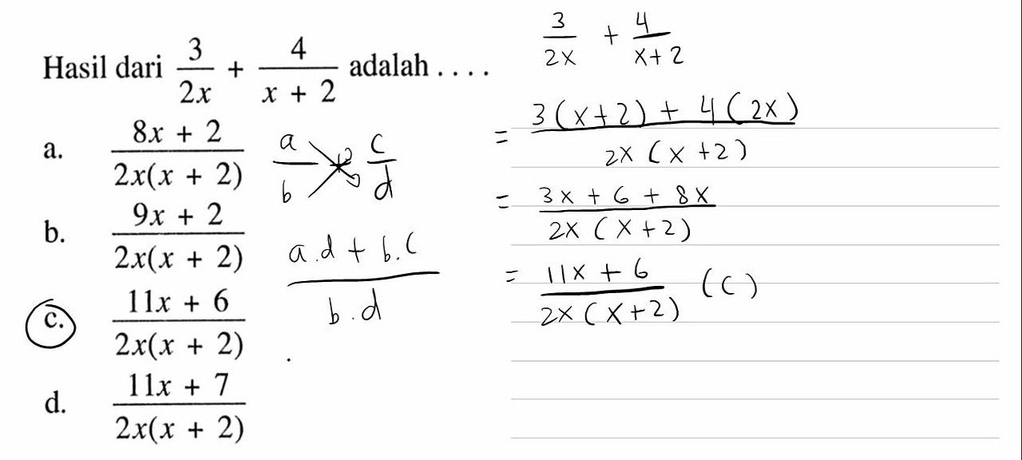 Hasil dari 3/2x + 4/(x + 2) adalah . . . .
a. (8x + 2)/(2x(x + 2))
b. (9x + 2)/(2x(x + 2))
c. (11x + 6)/(2x(x + 2))
d. (11x + 7)/(2x(x + 2))
a/b + c/d
(a.d + b.c)/(b.d)
3/2x + 4/(x+2)
= (3(x+2) + 4(2x))/(2x(x+2))
= (3x + 6 + 8x)/(2x(x+2))
= (11x + 6)/(2x(x+2)) (c)